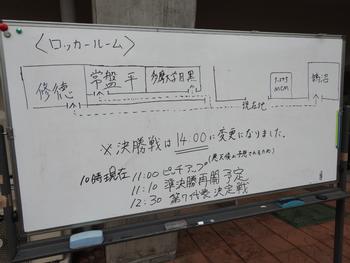 〈ロッカールーム〉
修徳 常盤平 多摩大目黒
現在地
※決勝戦は14:00に変更になりました。
(悪天候が予想されるため)
10時現在 11:00 ピッチアップ
11:10 準決勝再開予定
12:30 第7代表決定戦